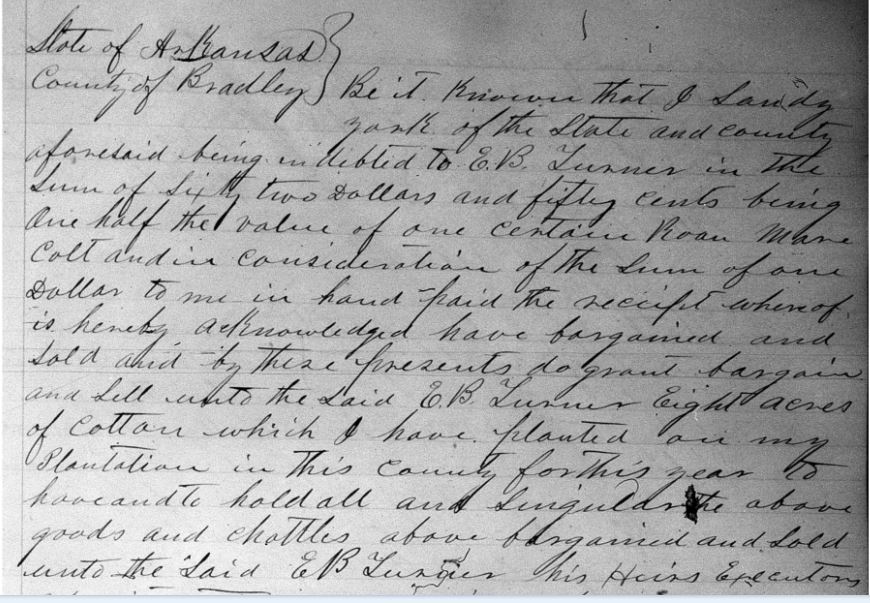 State of Arkansas
County of Bradley Be it Known that I Sandy
york of the State and county
aforesaid being indebted to E.B. Turner in the
Sum of Sixty two Dollars and fifty cents being
One half the value of one certain Roan Mare
Colt and in consideration of the Sum of one
Dollar to me in hand paid the receipt whereof
is hereby acknowledged have bargained and
Sold and by these presents do grant bargain
and Sell unto the Said E.B. Turner Eight acres
of Cotton which I have planted on my
Plantation in this County for this year to
have and to hold all and Singular the above
goods and chattles above bargained and Sold
unto the Said EB Turner his Heirs Executors